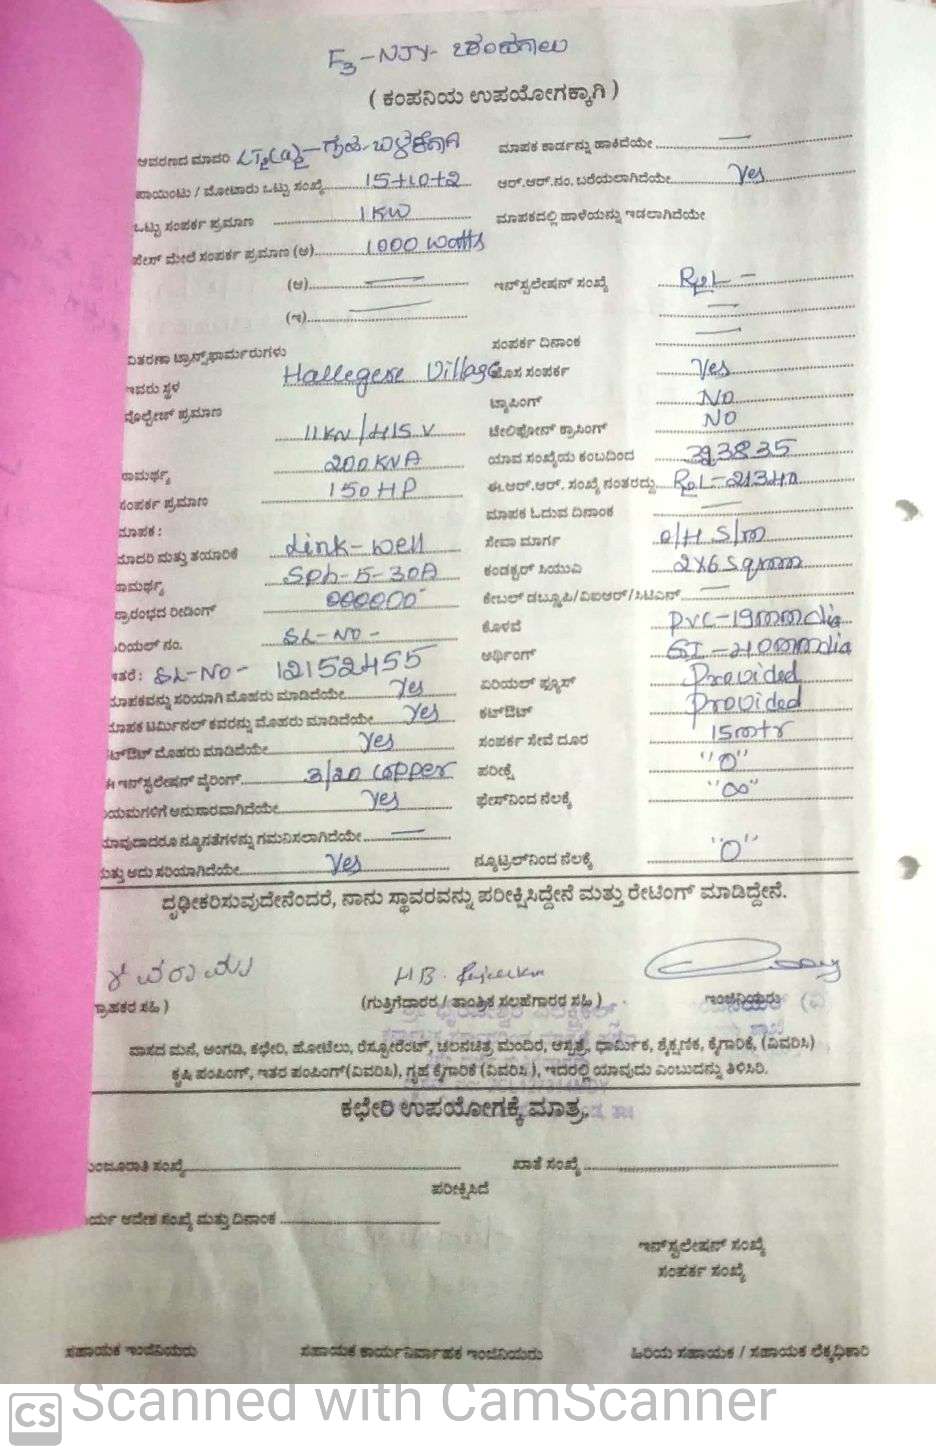 F3-NJY-
( ಕಂಪನಿಯ ಉಪಯೋಗಕ್ಕಾಗಿ )
ಆವರಣದ ಮಾದರಿ LT2(a)2-ಗೃಹ ಬಳಕೆಗಾಗಿ ಮಾಪಕ ಕಾರ್ಡನ್ನು ಹಾಕಿದೆಯೇ
ಪಾಯಿಂಟು / ಮೋಟಾರು ಒಟ್ಟು ಸಂಖ್ಯೆ 15+10+2 ಆರ್.ಆರ್.ನಂ. ಬರೆಯಲಾಗಿದೆಯೇ Yes
ಒಟ್ಟು ಸಂಪರ್ಕ ಪ್ರಮಾಣ 1KW ಮಾಪಕದಲ್ಲಿ ಹಾಳೆಯನ್ನು ಇಡಲಾಗಿದೆಯೇ
ಪೇಸ್ ಮೇಲೆ ಸಂಪರ್ಕ ಪ್ರಮಾಣ (ಅ) 1000 watts
(ಆ) ಇನ್‌ಸ್ಟಲೇಷನ್ ಸಂಖ್ಯೆ
(ಇ)
ವಿತರಣಾ ಟ್ರಾನ್ಸ್‌ಫಾರ್ಮರುಗಳು ಸಂಪರ್ಕ ದಿನಾಂಕ
ಇವರು ಸ್ಥಳ Hallegere Village ಹೊಸ ಸಂಪರ್ಕ Yes
ವೋಲ್ಟೇಜ್ ಪ್ರಮಾಣ ಟ್ಯಾಪಿಂಗ್ NO
11KV/415 V ಟೆಲಿಫೋನ್ ಕ್ರಾಸಿಂಗ್ NO
200KVA ಯಾವ ಸಂಖ್ಯೆಯ ಕಂಬದಿಂದ 323835
ಸಾಮರ್ಥ್ಯ 150HP ಈ.ಆರ್.ಆರ್. ಸಂಖ್ಯೆ ನಂತರದ್ದು
ಸಂಪರ್ಕ ಪ್ರಮಾಣ ಮಾಪಕ ಓದುವ ದಿನಾಂಕ
ಮಾಪಕ :
ಮಾದರಿ ಮತ್ತು ತಯಾರಿಕೆ Link-well ಸೇವಾ ಮಾರ್ಗ O/H S/m
ಸಾಮರ್ಥ್ಯ Sph-5-30A ಕಂಡಕ್ಟರ್ ಸಿಯುವಿ 2X6 Sqmm
ಪ್ರಾರಂಭದ ರೀಡಿಂಗ್ 000000 ಕೇಬಲ್ ಡಬ್ಲೂಪಿ/ವಿಐಆರ್/ಸಿಟಿಎಸ್
ಸೀರಿಯಲ್ ನಂ. SL-NO- ಕೊಳವೆ PVC-19mm dia
ಇತರೆ: SL-NO- 12152455 ಅರ್ಥಿಂಗ್ GI-40mm dia
ಮಾಪಕವನ್ನು ಸರಿಯಾಗಿ ಮೊಹರು ಮಾಡಿದೆಯೇ Yes ಏರಿಯಲ್ ಫ್ಯೂಸ್ Provided
ಮಾಪಕ ಟರ್ಮಿನಲ್ ಕವರನ್ನು ಮೊಹರು ಮಾಡಿದೆಯೇ Yes ಕಟ್‌ಔಟ್ Provided
ಕಟ್‌ಔಟ್ ಮೊಹರು ಮಾಡಿದೆಯೇ Yes ಸಂಪರ್ಕ ಸೇವೆ ದೂರ 15mtr
ಈ ಇನ್‌ಸ್ಟಲೇಷನ್ ವೈರಿಂಗ್ 3/20 copper ಪರೀಕ್ಷೆ "0"
ನಿಯಮಗಳಿಗೆ ಅನುಸಾರವಾಗಿದೆಯೇ Yes ಫೇಸ್‌ನಿಂದ ನೆಲಕ್ಕೆ "∞"
ಯಾವುದಾದರೂ ನ್ಯೂನತೆಗಳನ್ನು ಗಮನಿಸಲಾಗಿದೆಯೇ
ಮತ್ತು ಅದು ಸರಿಯಾಗಿದೆಯೇ Yes ನ್ಯೂಟ್ರಲ್‌ನಿಂದ ನೆಲಕ್ಕೆ "0"
ದೃಢೀಕರಿಸುವುದೇನೆಂದರೆ, ನಾನು ಸ್ಥಾವರವನ್ನು ಪರೀಕ್ಷಿಸಿದ್ದೇನೆ ಮತ್ತು ರೇಟಿಂಗ್ ಮಾಡಿದ್ದೇನೆ.
H.B.
ಗ್ರಾಹಕರ ಸಹಿ ) (ಗುತ್ತಿಗೆದಾರರ / ತಾಂತ್ರಿಕ ಸಲಹೆಗಾರರ ಸಹಿ ) ಇಂಜಿನಿಯರು
ವಾಸದ ಮನೆ, ಅಂಗಡಿ, ಕಛೇರಿ, ಹೋಟೆಲು, ರೆಸ್ಟೋರೆಂಟ್, ಚಲನಚಿತ್ರ ಮಂದಿರ, ಆಸ್ಪತ್ರೆ, ಧಾರ್ಮಿಕ, ಶೈಕ್ಷಣಿಕ, ಕೈಗಾರಿಕೆ, (ವಿವರಿಸಿ)
ಕೃಷಿ ಪಂಪಿಂಗ್, ಇತರ ಪಂಪಿಂಗ್(ವಿವರಿಸಿ), ಗೃಹ ಕೈಗಾರಿಕೆ (ವಿವರಿಸಿ ), ಇದರಲ್ಲಿ ಯಾವುದು ಎಂಬುದನ್ನು ತಿಳಿಸಿರಿ.
ಕಛೇರಿ ಉಪಯೋಗಕ್ಕೆ ಮಾತ್ರ
ಮಂಜೂರಾತಿ ಸಂಖ್ಯೆ ಖಾತೆ ಸಂಖ್ಯೆ
ಪರೀಕ್ಷಿಸಿದೆ
ಕಾರ್ಯ ಆದೇಶ ಸಂಖ್ಯೆ ಮತ್ತು ದಿನಾಂಕ
ಇನ್‌ಸ್ಟಲೇಷನ್ ಸಂಖ್ಯೆ
ಸಂಪರ್ಕ ಸಂಖ್ಯೆ
ಸಹಾಯಕ ಇಂಜಿನಿಯರು ಸಹಾಯಕ ಕಾರ್ಯನಿರ್ವಾಹಕ ಇಂಜಿನಿಯರು ಹಿರಿಯ ಸಹಾಯಕ / ಸಹಾಯಕ ಲೆಕ್ಕಾಧಿಕಾರಿ
CS Scanned with CamScanner